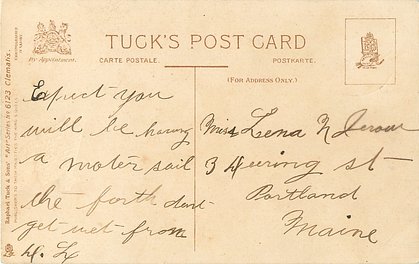 TUCK'S POST CARD
By Appointment.
CARTE POSTALE.
POSTKARTE.
(FOR ADDRESS ONLY.)
Raphael Tuck & Sons' "Art" Series No 6123 Clematis.
Expect you
will be having
a motor sail
the forth dont
get wet from
H. L
Miss Lena N
3 Deering st
Portland
Maine